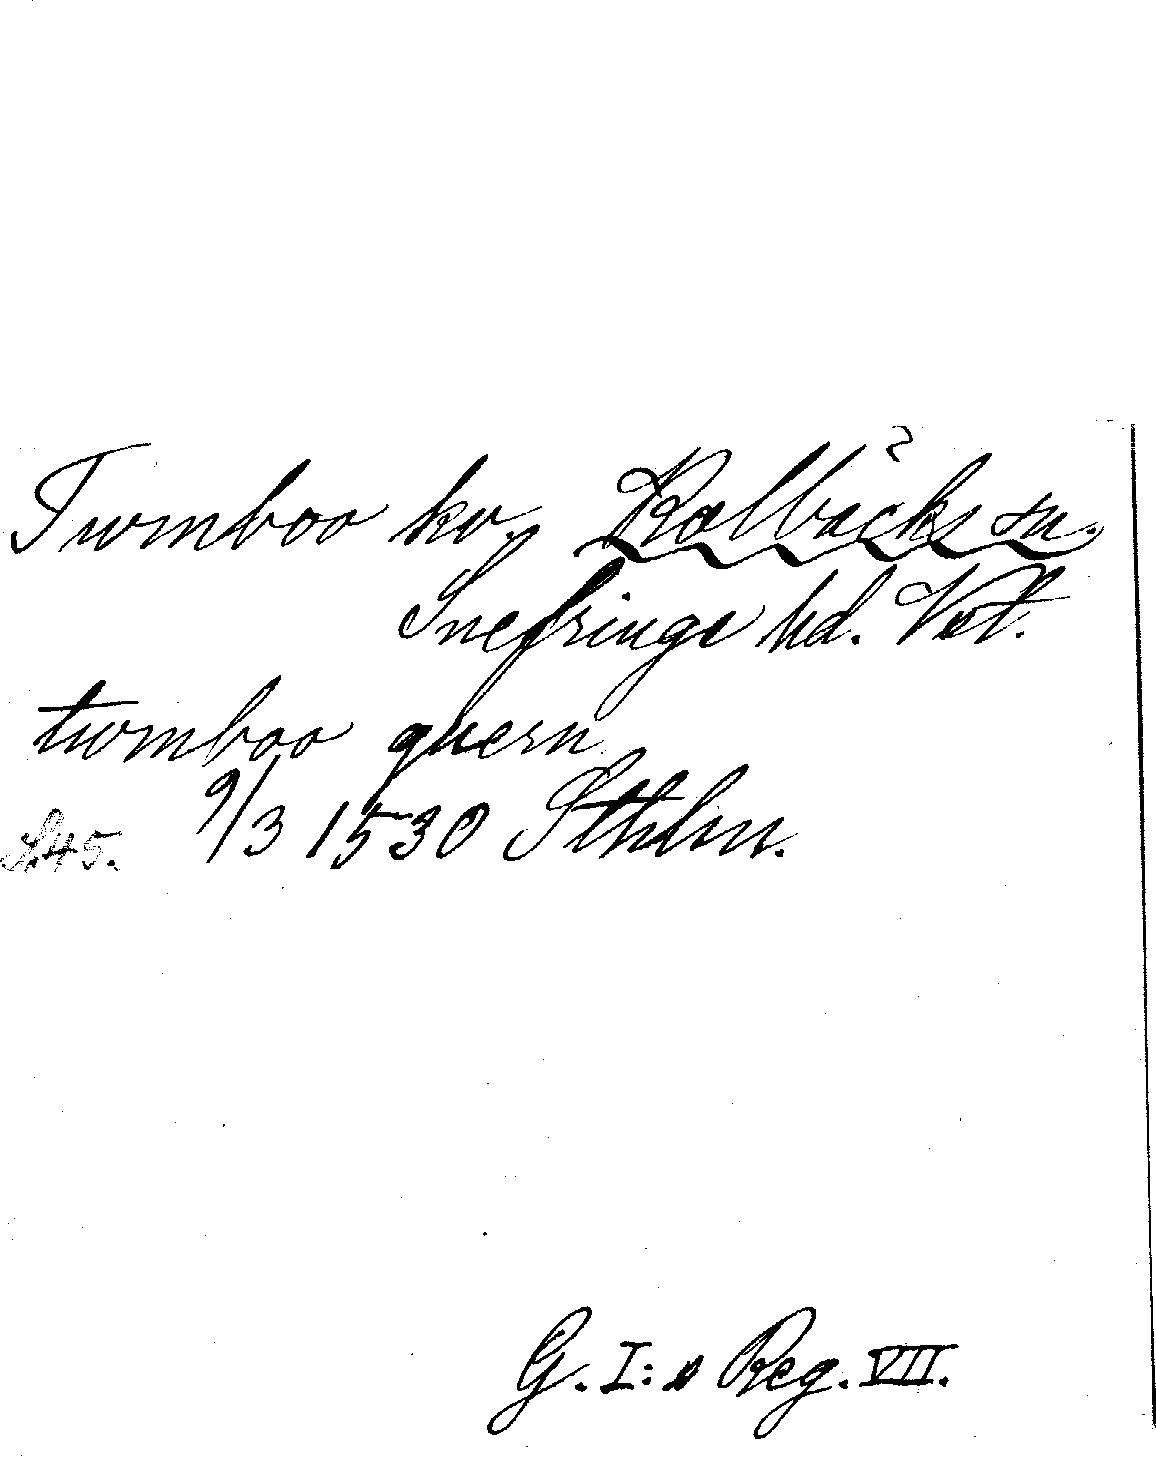 Twmboo kv. Kolbäcks sn.
Snefringe hd. Vstl.
twmboo quern
S.45. 9/3 1530 Sthlm.
G. I:s Reg. VII.